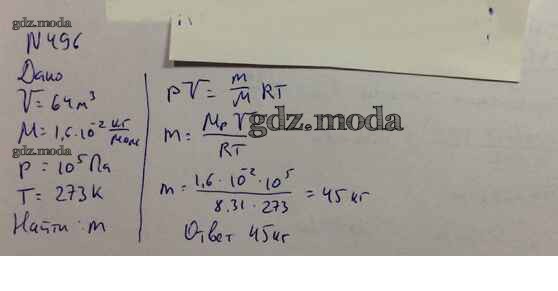 gdz.moda
N 496
Дано
V = 64 м³
M = 1,6 · 10⁻² кг/моль
gdz.moda
p = 10⁵ Па
T = 273 K
Найти: m
pV = m/M RT
m = MpV/RT
gdz.moda
m = 1,6 · 10⁻² · 10⁵ / 8.31 · 273 = 45 кг
Ответ 45 кг